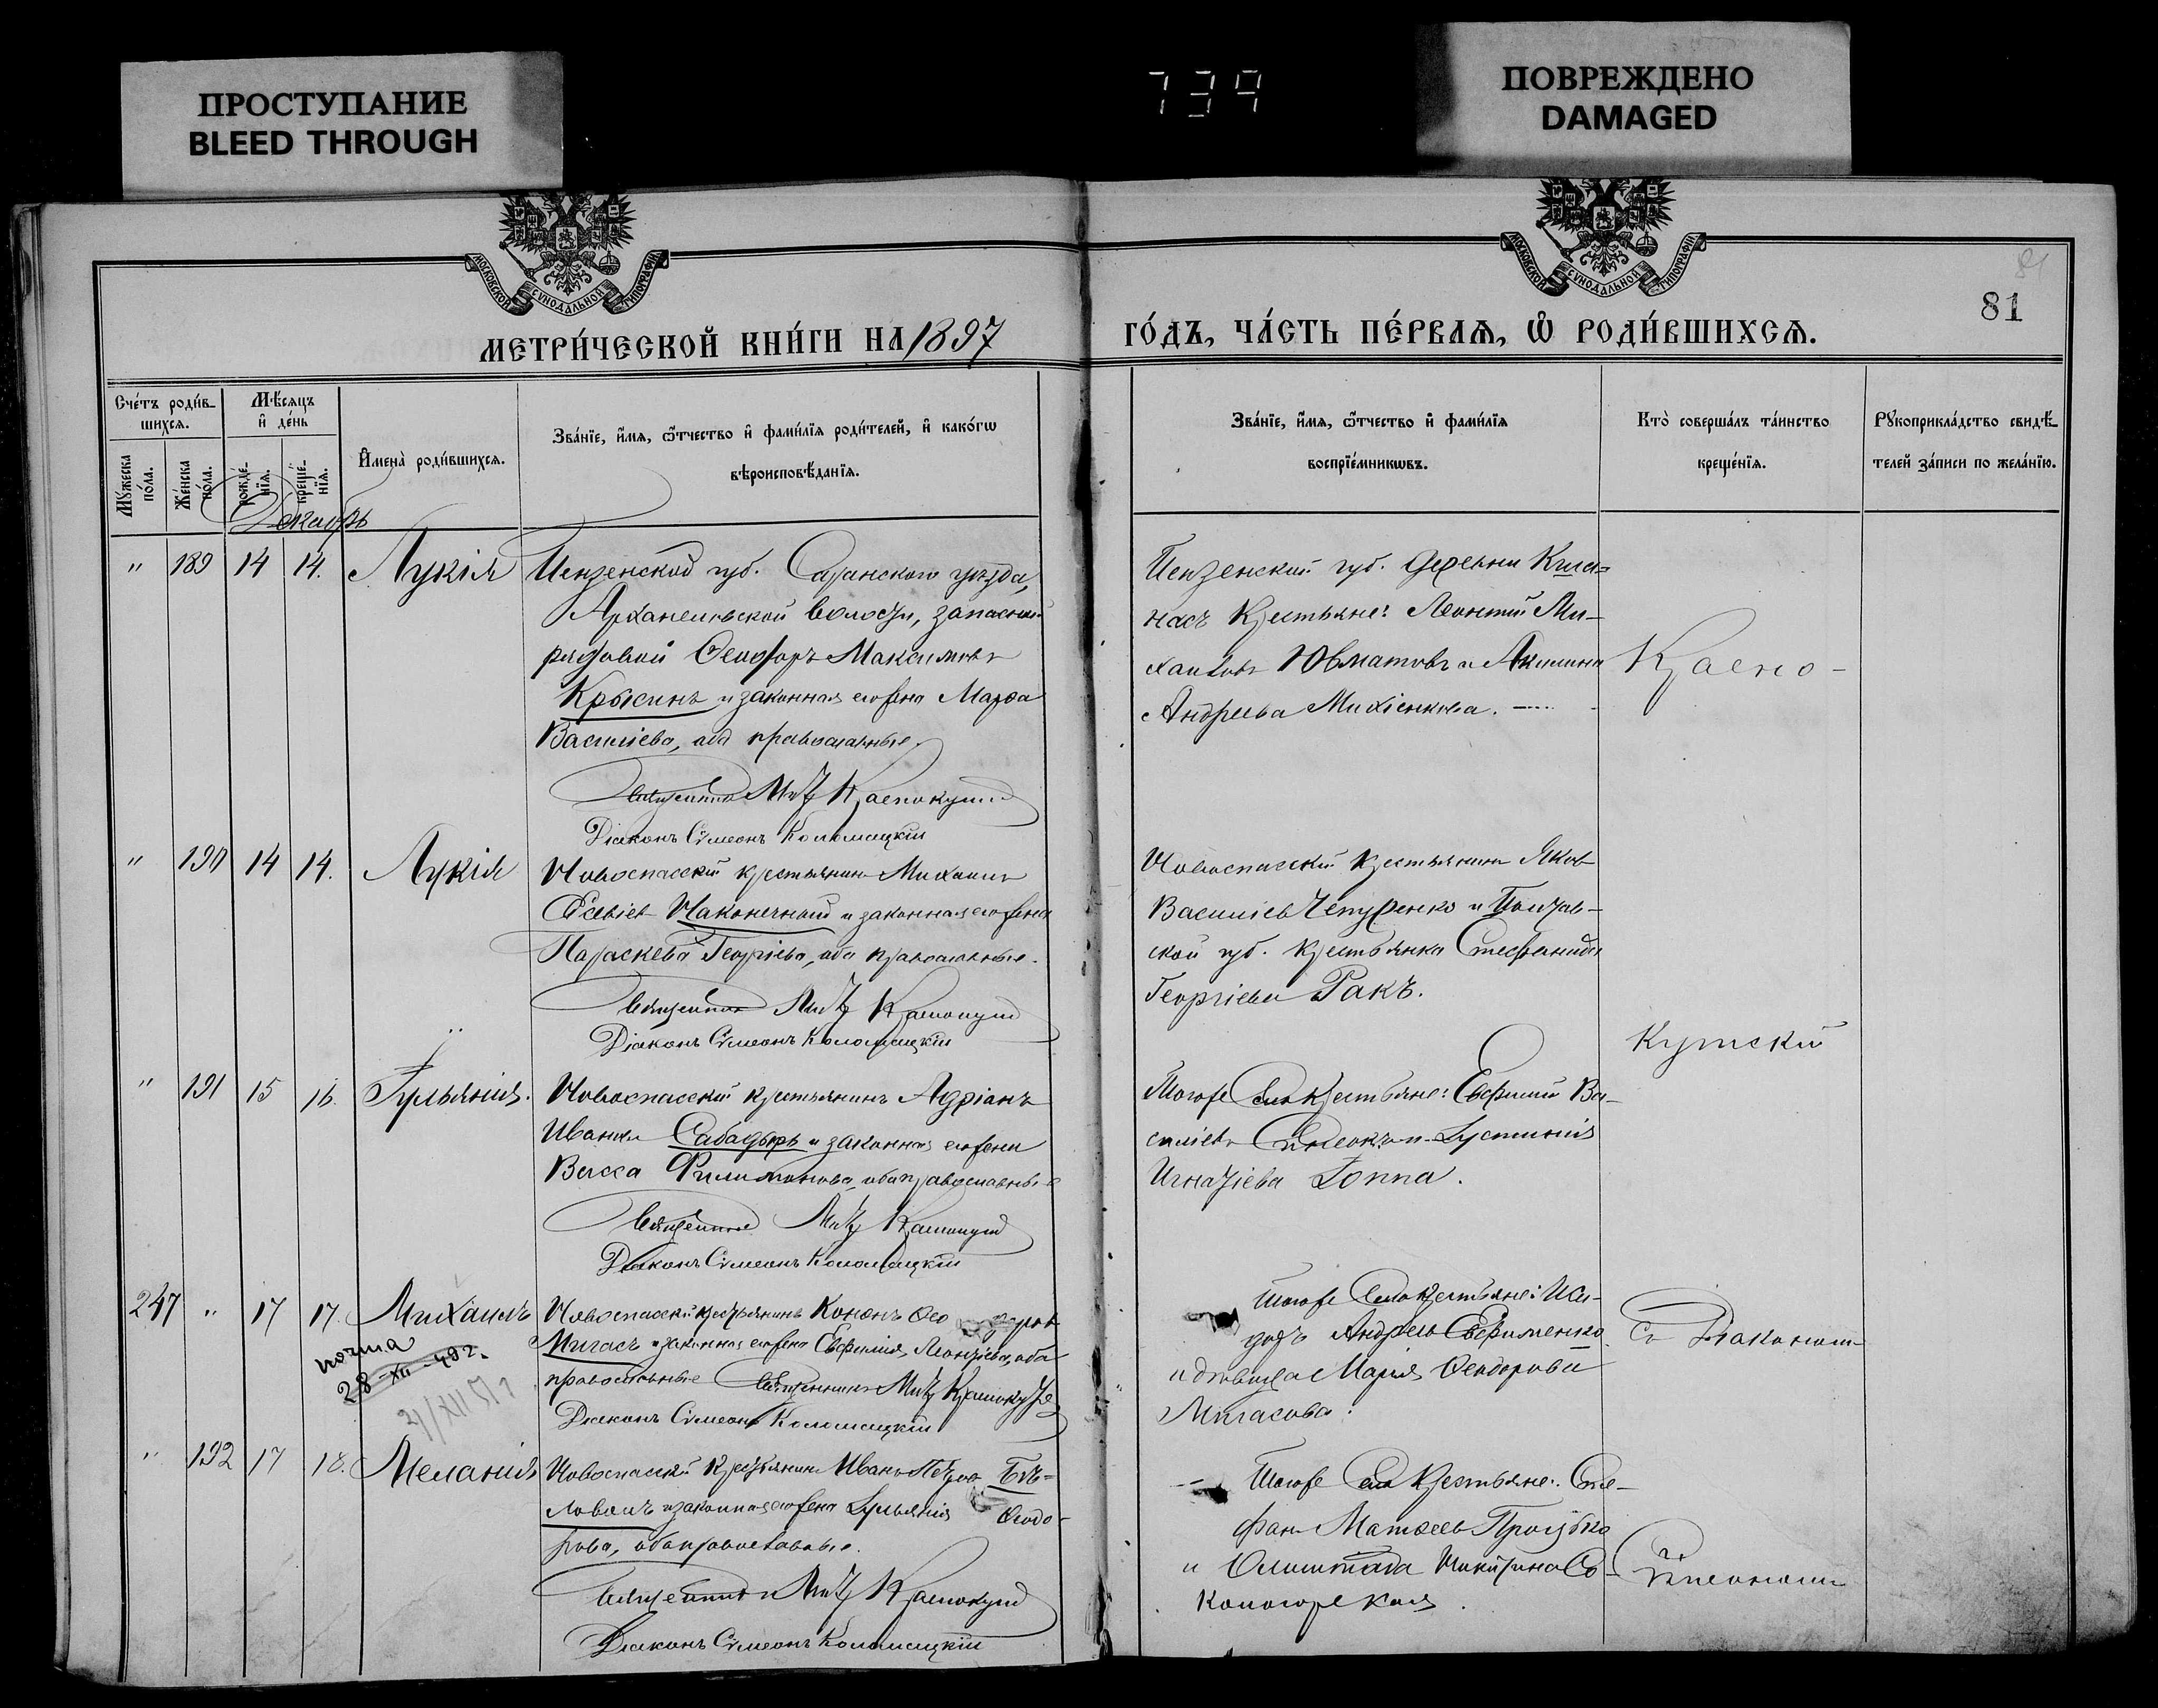 ПРОСТУПАНИЕ
BLEED THROUGH
739
ПОВРЕЖДЕНО
DAMAGED
МОСКОВСКОЙ СУНОДАЛЬНОЙ ТИПОГРАФІИ
МОСКОВСКОЙ СУНОДАЛЬНОЙ ТИПОГРАФІИ
81
81
МЕТРИ́ЧЕСКОЙ КНИ́ГИ НА 1897
ГО́ДЪ, ЧА́СТЬ ПЕ́РВАЯ, Ѡ҆ РОДИ́ВШИХСЯ.
Сче́тъ роди́в-
шихся.
Мѣ́сяцъ
и҆ де́нь
Мꙋ́жеска по́ла.
Же́нска по́ла.
рожде́-нїя.
креще́-нїя.
И҆мена̀ роди́вшихся.
Зва́нїе, и҆́мя, ѻ҆́тчество и҆ фами́лїя роди́телей, и҆ како́гѡ
вѣроисповѣ́данїя.
Зва́нїе, и҆́мя, ѻ҆́тчество и҆ фами́лїя
воспрїе́мникѡвъ.
Кто̀ соверша́лъ та́инство
креще́нїя.
Рꙋкоприкла́дство свидѣ́-
телей за́писи по жела́нїю.
Декабрь
" 189 14 14. Лукія
Пензенской губ. Саранскаго уѣзда,
Архангельской волости, запасный
рядовой Ѳеодоръ Максимовъ
Крысинъ и законная его жена Марѳа
Василіева, оба православные.
Священникъ Мит. Краснокутскій
Діаконъ Сѵмеонъ Коломацкій
Пензенской губ. деревни
крестьяне: Леонтій Ми-
хаиловъ Юематовъ и Акилина
Андреева
Красно-
" 190 14 14. Лукія
Новоспасскій крестьянинъ Михаилъ
Наконечный и законная его жена
Параскева Георгіева, оба православные.
Священникъ Мит. Краснокутскій
Діаконъ Сѵмеонъ Коломацкій
Новоспасскій крестьянинъ Яковъ
Василіевъ Чепуренко и Полтав-
ской губ. крестьянка Стефанида
Георгіева Ракъ.
кутскій
" 191 15 16. Іуліанія.
Новоспасскій крестьянинъ Адріанъ
Ивановъ Сабадырь и законная его жена
Васса Филимонова, оба православные
Священникъ Мит. Краснокутскій
Діаконъ Сѵмеонъ Коломацкій
Того же села крестьяне: Евфимій Ва-
силіевъ и Іустинія
Игнатіева Лоппа.
247 " 17 17. Михаилъ
Новоспасскій крестьянинъ Кононъ Ѳеодоровъ
Мигасъ и законная его жена Евфимія Леонтіева, оба
православные Священникъ Мит. Краснокутскій
Діаконъ Сѵмеонъ Коломацкій
28-XII-49г.
Того же села крестьяне: Иси-
доръ Андреевъ Евфименко
и дѣвица Марія Ѳеодорова
Мигасова.
Съ Діакономъ
" 192 17 18. Меланія
Новоспасскій крестьянинъ Иванъ Петровъ Бѣ-
ловолъ и законная его жена Іуліанія Ѳеодо-
рова, оба православные.
Священникъ Мит. Краснокутскій
Діаконъ Сѵмеонъ Коломацкій
Того же села крестьяне: Сте-
фанъ Матѳеевъ
и Никитина Со-